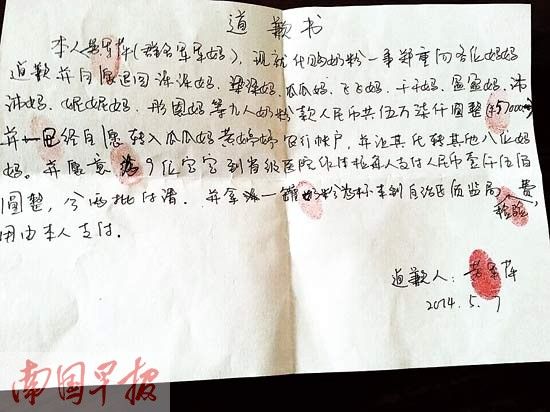 道歉书
本人(群名军军妈)，现就代购奶粉一事郑重向各位妈妈
道歉并自愿退回泽泽妈、梁泽妈、瓜瓜妈、飞飞妈、千千妈、盈盈妈、沐
沐妈、妮妮妈、彤图妈等九人奶粉款人民币共伍万柒仟圆整(¥57000
并一已经自愿转入瓜瓜妈黄婷婷银行帐户，并让其代转其他八位妈
妈。并愿意为9位宝宝到省级医院做体检每人支付人民币壹仟伍佰
圆整，分两批付清．并拿一罐奶粉为标本到自治区质监局检验，费
用由本人支付．
道歉人：
2014.5.7
南国早报